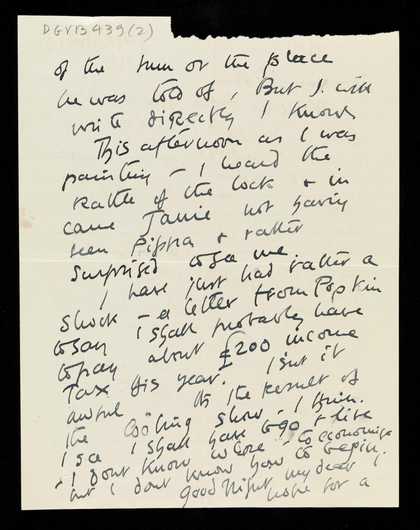 DGVB 439(2)
of the man or the place
he was told of, But I will
write directly I know
This afternoon as I was
painting – I heard the
rattle of the lock + in
came Janie not having
seen Pippa + rather
surprised to see me.
I have just had rather a
shock – a letter from Popkin
to say I shall probably have
to pay about £200 income
Tax this year. Isn't it
awful Its the result of
the Cooling show, I think.
I see I shall have to go + live
+ I dont know where to economise
but I dont know how to begin.
Good night my dear I
hope for a